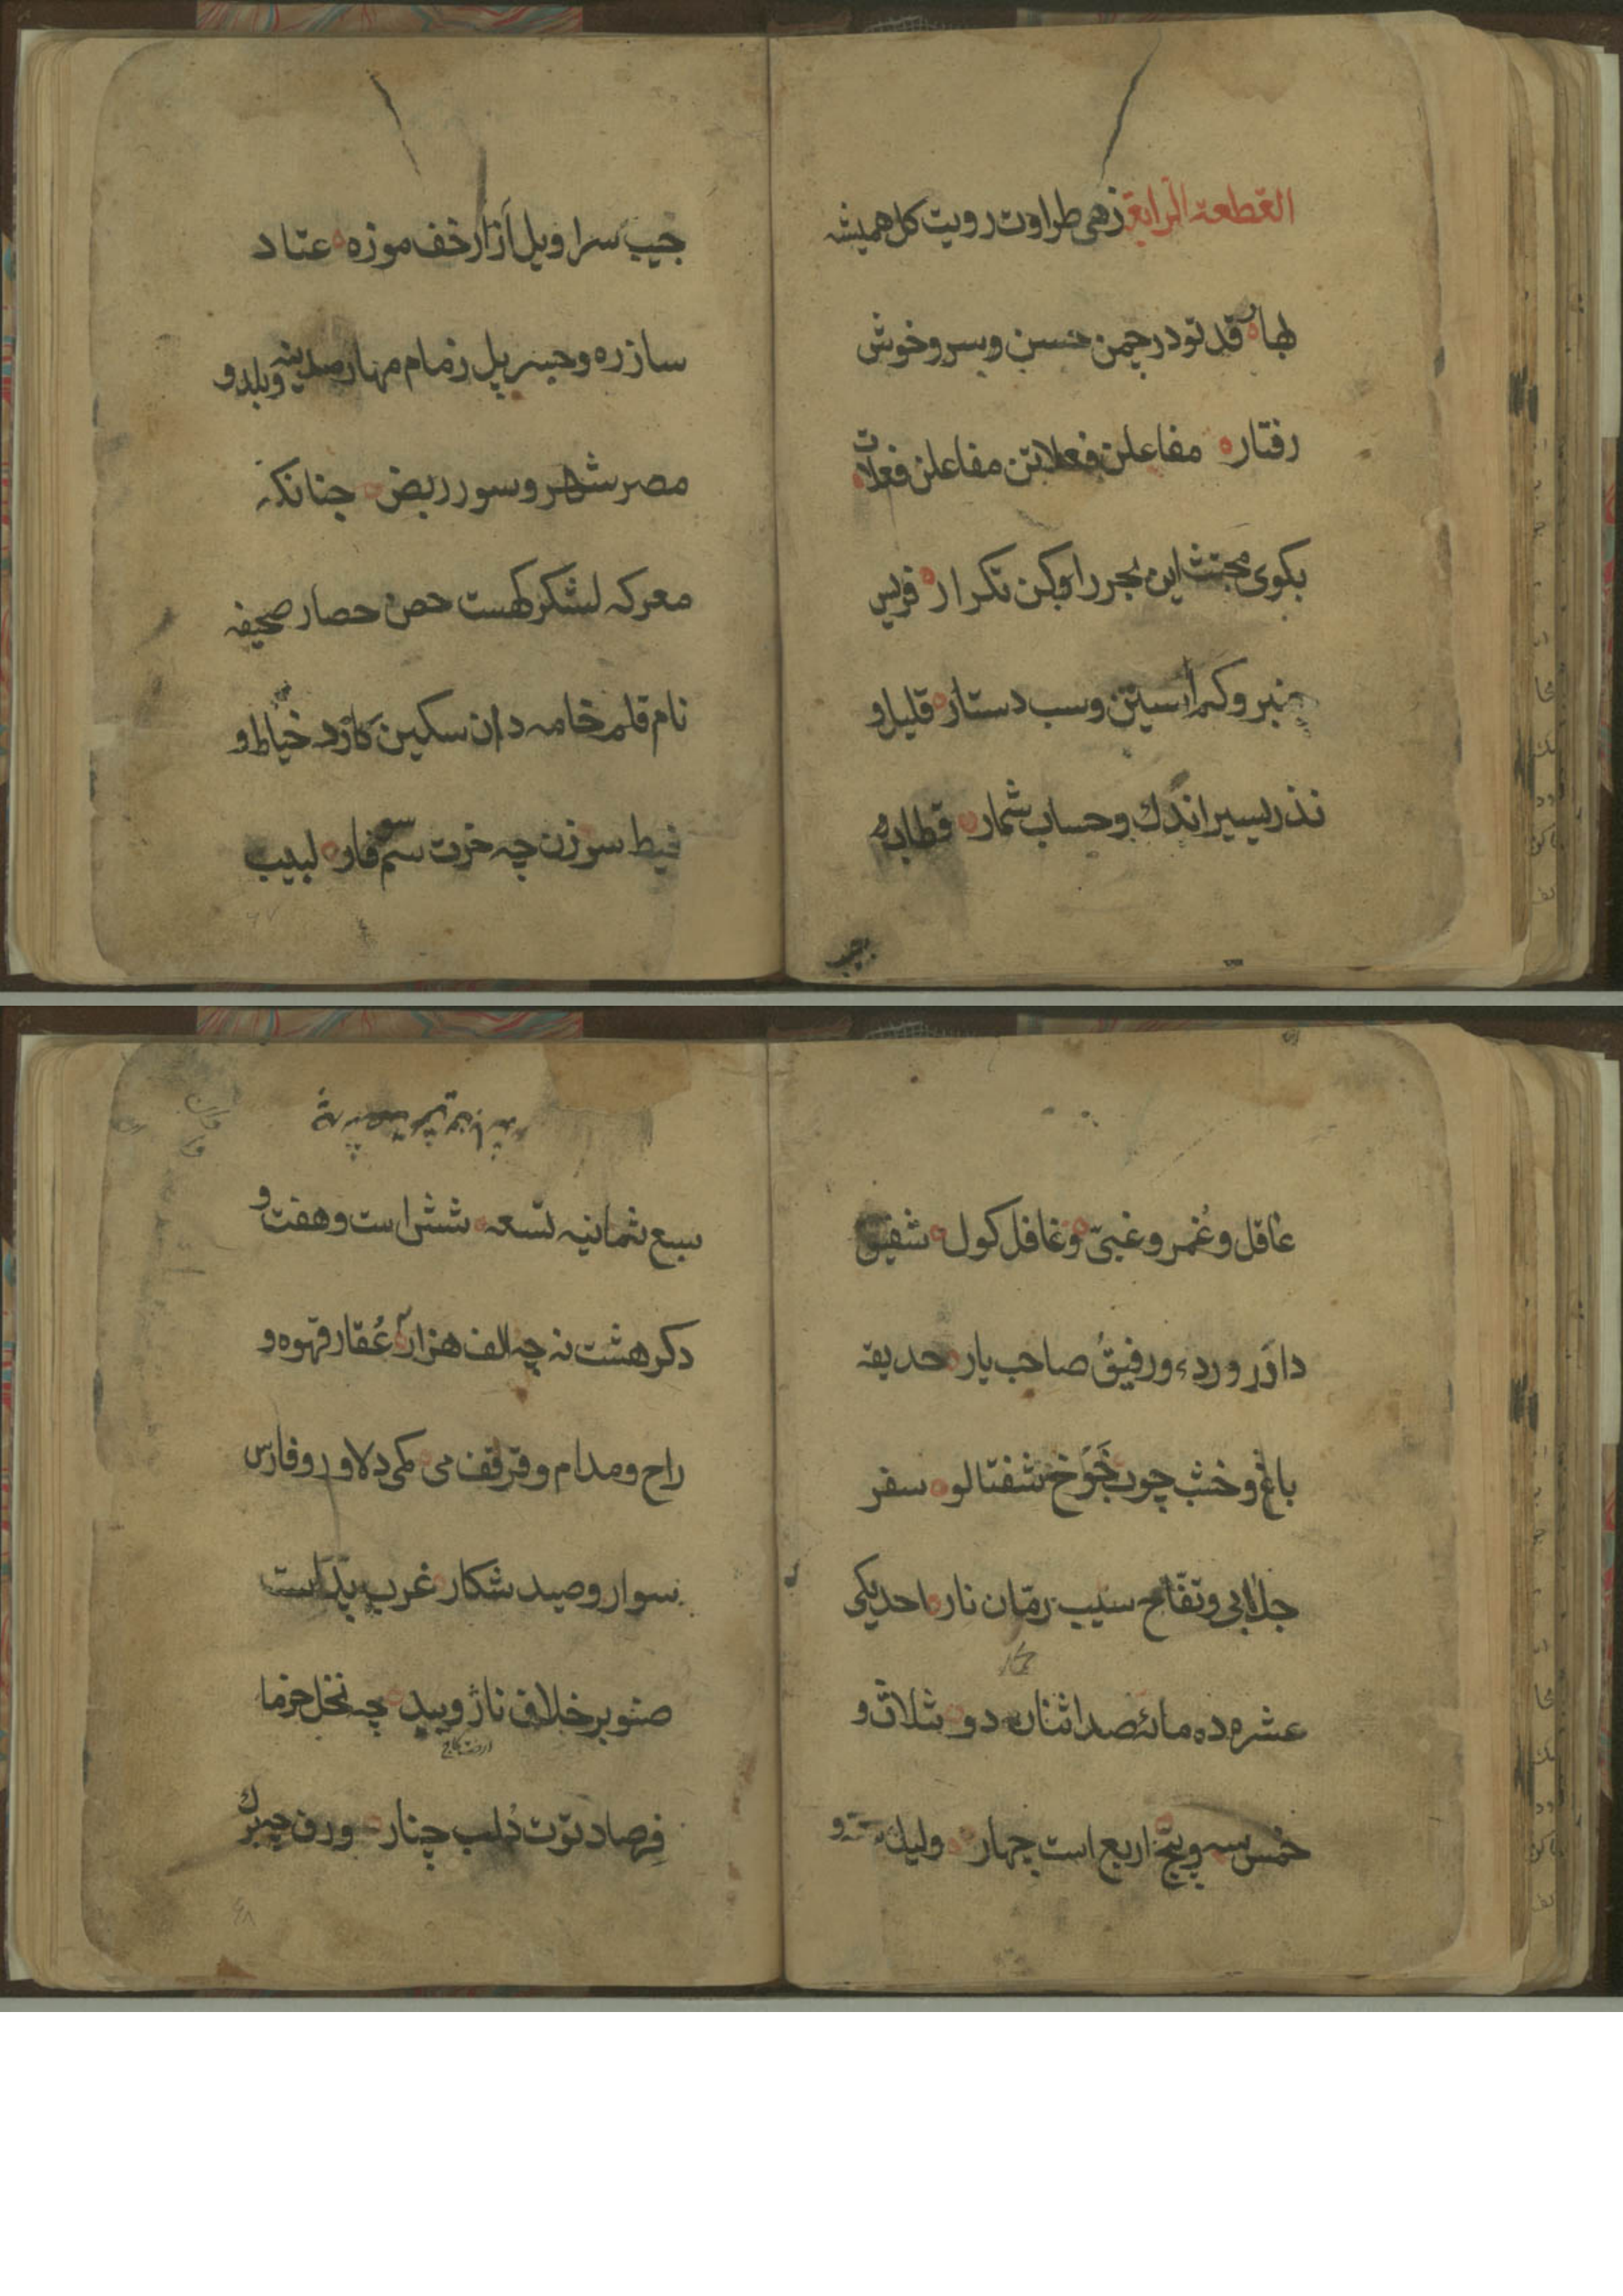 القطعة الرابعة زهی طراوت رویت کل همیشه
بهار قد تو در چمن حسن و سرو خوش
رفتار مفاعلن فعلاتن مفاعلن فعلات
بکوی مجتث این بحر را و بکن تکرار
و کم آستین و سب دستار قلیل و
نذر یسیر اندك و حساب شمار
جیب
جیب سراویل ازار خف موزه عتاد
ساز ره و جسر پل زمام مهار مدینه و بلد و
مصر شهر و سور ربض جنانکه
معرکه لشکر کهست حصن حصار صحیفه
نام قلم خامه دان سکین کارد خیاط و
خیط سوزن چه خرت سم سوفار لبیب
عاقل و غمر و غبیّ و غافل کول شفیق
دادر و ردء و رفیق صاحب یار حدیقه
باغ و خشب چوب خَوَخ شفتالو سفر
جل ابی و تفّاح سیب رمّان نار احد یکی
عشره ده مائه صد اثنان دو ثلاث و
خمس سه و پنج اربع است چهار ولیك سته و
سبع ثمانیه تسعه شش است و هفت و
دکر هشت نه چه الف هزار عُقار قهوه و
راح و مدام و قرقف می کمی دلاور و فارس
سوار و صید شکار غرب پده است
صنوبر خلاف ناژ و بید چه نخل خرما
فرصاد توت دُلب چنار ورق چه برك